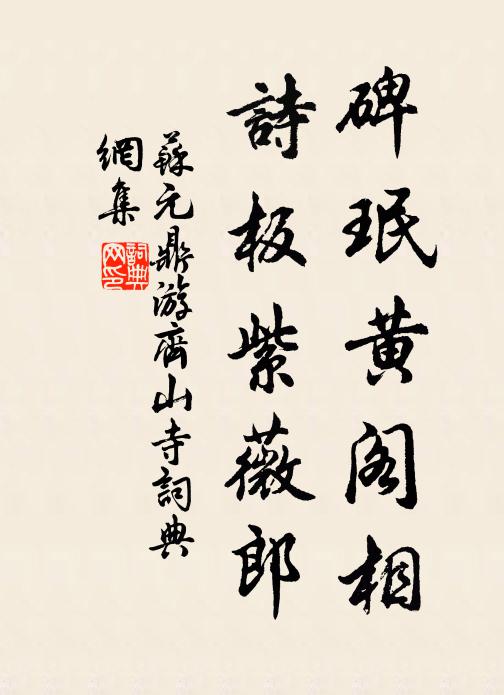 碑珉黄阁相
詩板紫薇郎
蘇元鼎游齊山寺詞典
網集
詞典網印